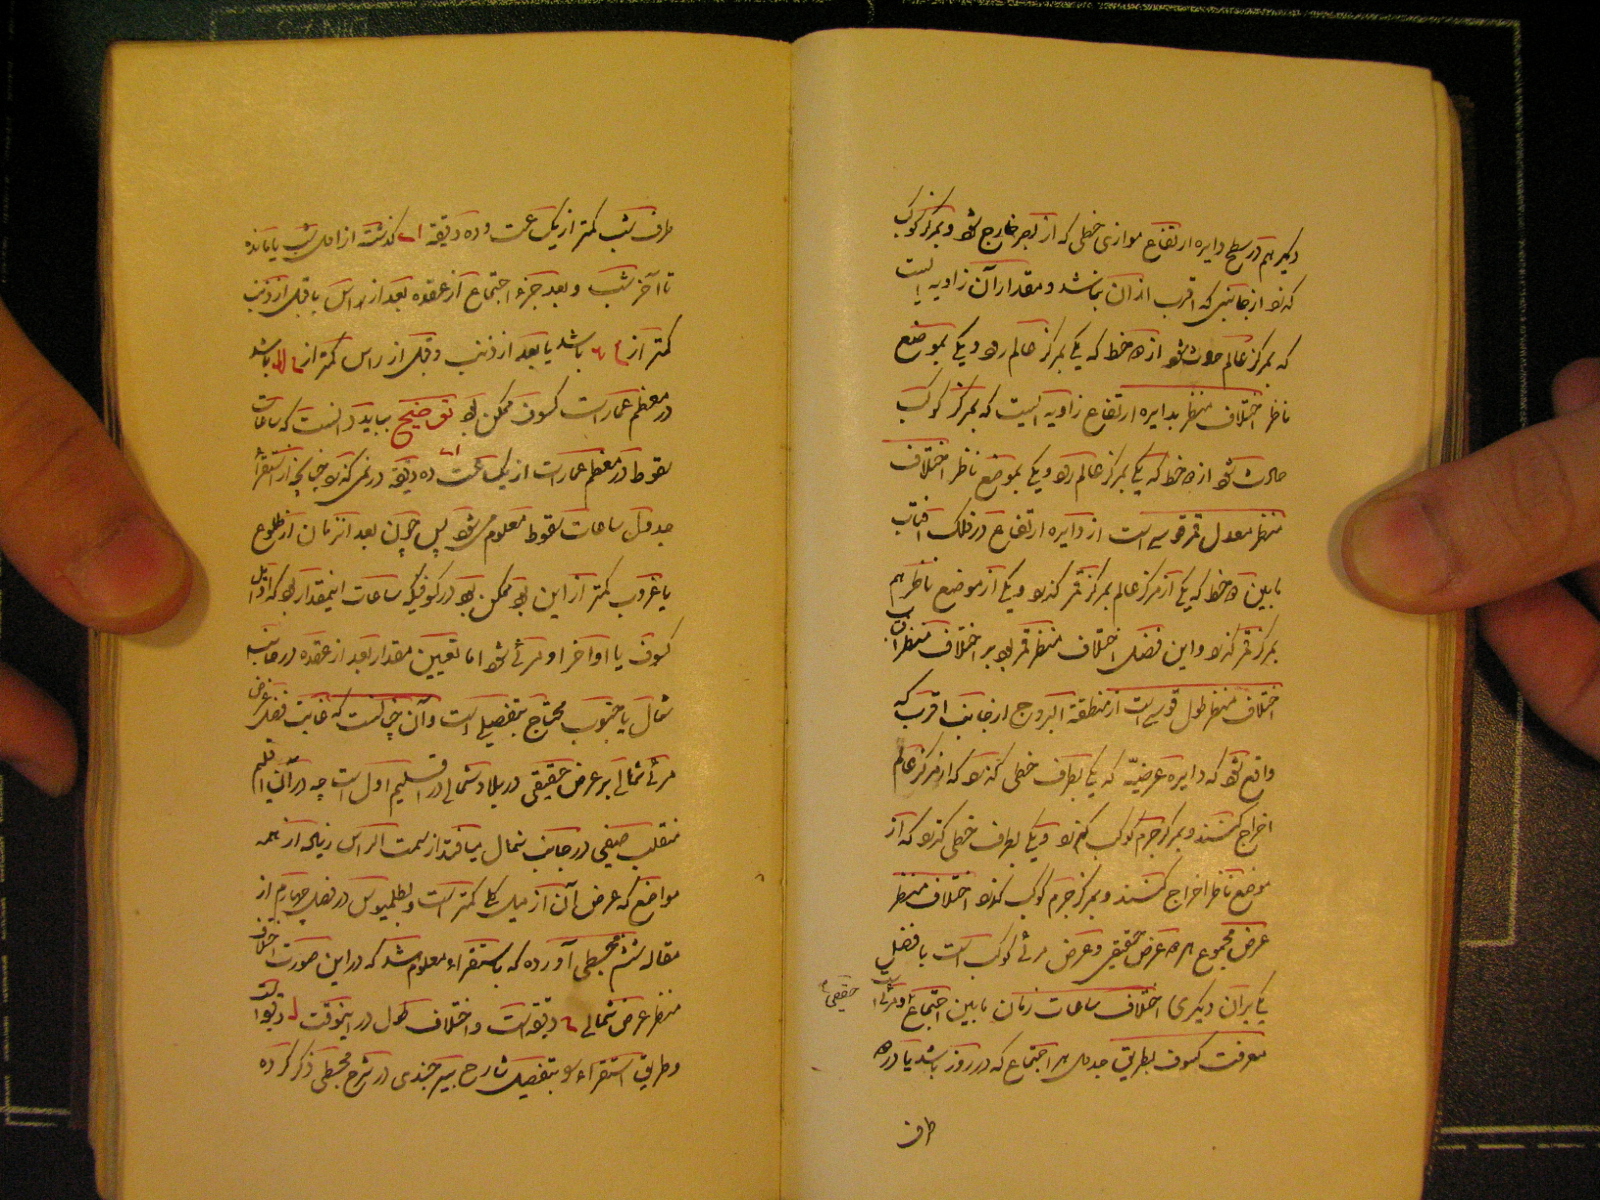 دیگر هم در سطح دایره ارتفاع موازی خطی که از بصر خارج شود و بمرکز کوکب
که نه از جانبی که اقرب ازان باشد و مقدار آن زاویه ایست
که بمرکز عالم حادث شود از دو خط که یکی بمرکز عالم رود و یکی بموضع
ناظر اختلاف منظر بدایره ارتفاع زاویه ایست که بمرکز کوکب
حادث شود از دو خط که یکی بمرکز عالم رود و یکی بموضع ناظر اختلاف
منظر معدل قمر قوسی است از دایره ارتفاع در فلک آفتاب
مابین دو خط که یکی از مرکز عالم بمرکز قمر گذرد و یکی از موضع ناظر هم
بمرکز قمر گذرد و این فضل اختلاف منظر قمر بود بر اختلاف منظر آفتاب
اختلاف منظر طول قوسی است از منطقة البروج از جانب اقرب که
واقع شود که دایره عرضیه که یکی بطرف خطی گذرد که از مرکز عالم
اخراج کنند و بمرکز جرم کوکب گذرد و یکی بطرف خطی گذرد که از
موضع ناظر اخراج کنند و بمرکز جرم کوکب گذرد اختلاف منظر
عرض مجموع هر دو عرض حقیقی و عرض مرئی کوکب است یا فضل
یکی بر آن دیگری اختلاف ساعات زمان مابین اجتماع و مرئی است
حقیقی
معرفت کسوف بطریق جدول هر اجتماع که در روز باشد یا در دو
طرف
طرف شب کمتر از یک ساعت و ده دقیقه گذشته از اول شب یا مانده
تا آخر شب و بعد جزء اجتماع از عقده بعد از راس یا قبل از ذنب
کمتر از باشد یا بعد از ذنب و قبل از راس کمتر از باشد
در معظم عمارت کسوف ممکن بود توضیح بباید دانست که ساعات
سقوط در معظم عمارت از یک ساعت ده دقیقه در نمی گذرد چنانچه از استقراء
جدول ساعات سقوط معلوم می شود پس چون بعد از زمان از طلوع
یا غروب کمتر از این بود ممکن بود در کسوفیکه ساعات اینمقدار بود که اوایل
کسوف یا اواخر او مرئی شود اما تعیین مقدار بعد از عقده در جانب
شمال یا جنوب محتاج بتفصیلی است و آن چنانست که غایت فضل عرض
مرئی شمالی بر عرض حقیقی در بلاد شمالی در اقلیم اول است چه در آن اقلیم
منقلب صیفی در جانب شمال میافتد از سمت الراس زیاده از همه
مواضع که عرض آن از میل کلی کمتر است و بطلمیوس در فصل چهارم از
مقاله ششم مجسطی آورده که باستقراء معلوم شد که در این صورت اختلاف
منظر عرض شمالی دقیقه است و اختلاف طول در اینوقت دقیقه
و طریق استقراء بتفصیل شارح بیرجندی در شرح مجسطی ذکر کرده